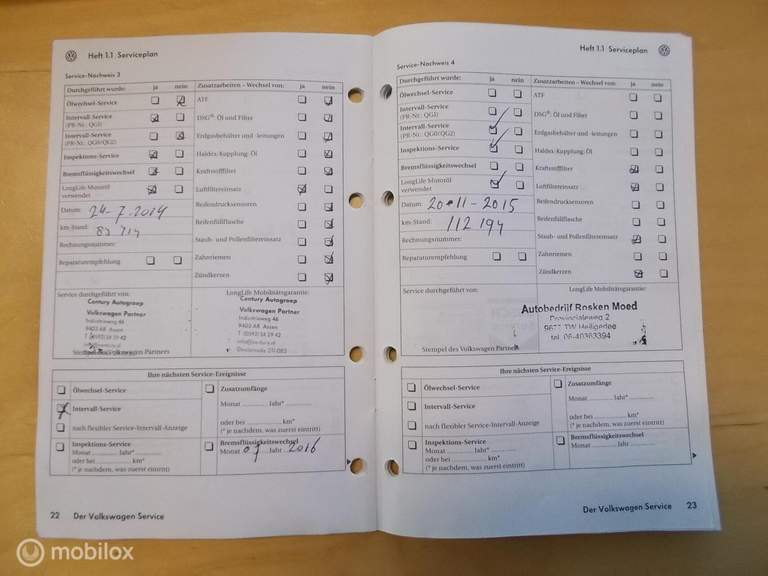 Heft 1.1 Serviceplan
Service-Nachweis 3
Durchgeführt wurde: ja nein
Ölwechsel-Service
Intervall-Service
(PR-Nr.: QGI)
Intervall-Service
(PR-Nr.: QG0/QG2)
Inspektions-Service
Bremsflüssigkeitswechsel
LongLife Motoröl
verwendet
Datum: 24-7-2014
km-Stand:
Rechnungsnummer:
Reparaturempfehlung
Zusatzarbeiten - Wechsel von: ja nein
ATF
DSG®: Öl und Filter
Erdgasbehälter und -leitungen
Haldex-Kupplung: Öl
Kraftstofffilter
Luftfiltereinsatz
Reifendrucksensoren
Reifenfüllflasche
Staub- und Pollenfiltereinsatz
Zahnriemen
Zündkerzen
Service durchgeführt von:
Century Autogroep
Volkswagen Partner
Industrieweg 46
9403 AB Assen
Stempel des Volkswagen Partners
LongLife Mobilitätsgarantie:
Century Autogroep
Volkswagen Partner
Industrieweg 46
9403 AB Assen
Ihre nächsten Service-Ereignisse
Ölwechsel-Service
Intervall-Service
nach flexibler Service-Intervall-Anzeige
Inspektions-Service
Monat Jahr*
oder bei km*
(* je nachdem, was zuerst eintritt)
Zusatzumfänge
Monat Jahr*
oder bei km*
(* je nachdem, was zuerst eintritt)
Bremsflüssigkeitswechsel
Monat 07 Jahr 2016
22 Der Volkswagen Service
Heft 1.1 Serviceplan
Service-Nachweis 4
Durchgeführt wurde: ja nein
Ölwechsel-Service
Intervall-Service
(PR-Nr.: QGI)
Intervall-Service
(PR-Nr.: QG0/QG2)
Inspektions-Service
Bremsflüssigkeitswechsel
LongLife Motoröl
verwendet
Datum: 20-11-2015
km-Stand: 112194
Rechnungsnummer:
Reparaturempfehlung
Zusatzarbeiten - Wechsel von: ja nein
ATF
DSG®: Öl und Filter
Erdgasbehälter und -leitungen
Haldex-Kupplung: Öl
Kraftstofffilter
Luftfiltereinsatz
Reifendrucksensoren
Reifenfüllflasche
Staub- und Pollenfiltereinsatz
Zahnriemen
Zündkerzen
Service durchgeführt von:
LongLife Mobilitätsgarantie:
Autobedrijf Rosken Moed
Provincialeweg 2
9677 TW Heiligerlee
tel. 06-40363394
Stempel des Volkswagen Partners
Ihre nächsten Service-Ereignisse
Ölwechsel-Service
Intervall-Service
nach flexibler Service-Intervall-Anzeige
Inspektions-Service
Monat Jahr*
oder bei km*
(* je nachdem, was zuerst eintritt)
Zusatzumfänge
Monat Jahr*
oder bei km*
(* je nachdem, was zuerst eintritt)
Bremsflüssigkeitswechsel
Monat Jahr
Der Volkswagen Service 23
mobilox